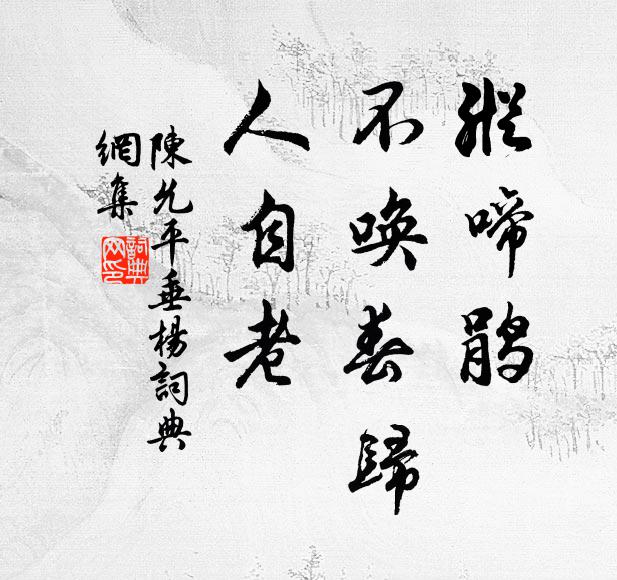 縱啼鵑
不喚春歸
人自老
陳允平垂楊詞典
網集
詞典
网印